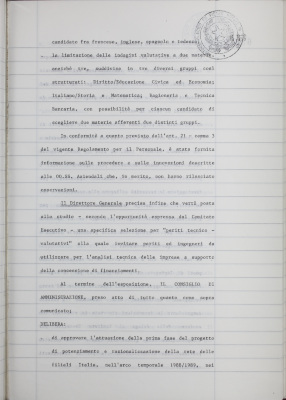 candidato fra francese, inglese, spagnolo e tedesco;
- la limitazione delle indagini valutative a due materie
anziché tre, suddivise in tre diversi gruppi così
strutturati: Diritto/Educazione Civica ed Economia;
Italiano/Storia e Matematica; Ragioneria e Tecnica
Bancaria, con possibilità per ciascun candidato di
scegliere due materie afferenti due distinti gruppi.
In conformità a quanto previsto dall'art. 21 - comma 3
del vigente Regolamento per il Personale, è stata fornita
informazione sulle procedure e sulle innovazioni descritte
alle OO.SS. aziendali che, in merito, non hanno rilasciato
osservazioni.
Il Direttore Generale precisa infine che verrà posto
allo studio - secondo l'opportunità espressa dal Comitato
Esecutivo - una specifica selezione per "periti tecnico -
valutativi" alla quale invitare periti ed ingegneri da
utilizzare per l'analisi tecnica delle imprese a supporto
della concessione di finanziamenti.
Al termine dell'esposizione, IL CONSIGLIO DI
AMMINISTRAZIONE, preso atto di tutto quanto come sopra
comunicato;
DELIBERA:
di approvare l'attuazione della prima fase del progetto
di potenziamento e razionalizzazione della rete delle
filiali Italia, nell'arco temporale 1988/1989, nei